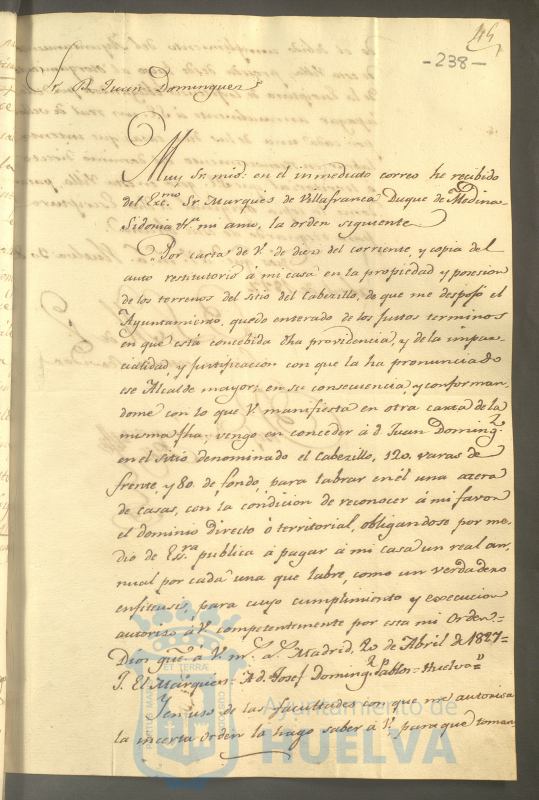 45
-238-
Sr. D. Juan Dominguez
Muy Sr. mio: en el inmediato correo he recibido
del Exc.mo Sr. Marques de Villafranca Duque de Medina
Sidonia &.a mi amo, la orden siguiente
"Por carta de V. de diez del corriente, y copia del
auto restitutorio á mi casa en la propiedad y posesion
de los terrenos del sitio del Cabezillo, de que me despojó el
Ayuntamiento, quedo enterado de los justos terminos
en que está concebida dha providencia, y de la impar=
cialidad, y justificacion con que la ha pronunciado
ese Alcalde mayor; en su consecuencia, y conforman
dome con lo que V. manifiesta en otra carta de la
misma fha; vengo en conceder á d. Juan Doming.z
en el sitio denominado el Cabezillo, 120. varas de
frente, y 80. de fondo, para labrar en él una acera
de casas, con la condicion de reconocer á mi favor
el dominio directo ó territorial, obligandose por me,
dio de Ess.ra publica á pagar á mi casa un real an,
nual por cada una que labre, como un verdadero
enfiteusis, para cuyo cumplimiento y execucion
autorizo á V. competentemente por esta mi Orden=
Dios gue. á V. m.s a.s Madrid, 20 de Abril de 1827=
J. El Marques= A d. Josef Doming.z Pablos= Huelva="
Y en uso de las facultades con que me autoriza
la incerta orden la hago saber á V. para que toman
ET TERRÆ
Ayuntamiento de
HUELVA